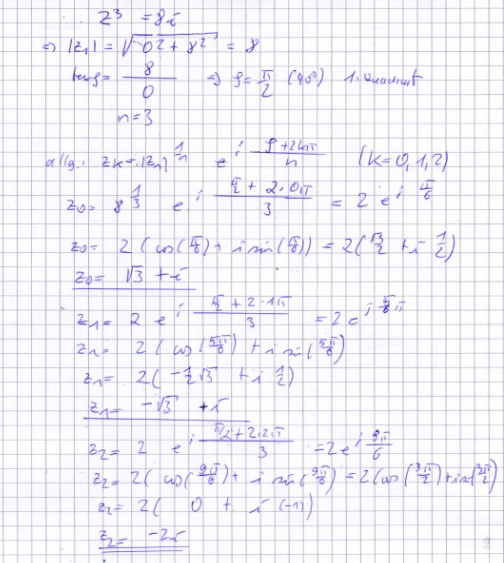 z³ = 8i
⇒ |z₁| = √(0² + 8²) = 8
tanφ = 8/0 ⇒ φ = π/2 (90°) 1. Quadrant
n = 3
allg.: zk = |z₁|^(1/n) e^(i (φ+2kπ)/n) (k = 0,1,2)
z₀ = 8^(1/3) e^(i (π/2 + 2·0π)/3) = 2 e^(i π/6)
z₀ = 2 (cos(π/6) + i sin(π/6)) = 2(√3/2 + i 1/2)
z₀ = √3 + i
z₁ = 2 e^(i (π/2 + 2·1π)/3) = 2 e^(i 5/6 π)
z₁ = 2 (cos(5π/6) + i sin(5π/6))
z₁ = 2(-1/2 √3 + i 1/2)
z₁ = -√3 + i
z₂ = 2 e^(i (π/2 + 2·2π)/3) = 2 e^(i 9π/6)
z₂ = 2(cos(9π/6) + i sin(9π/6)) = 2(cos(3π/2) + i sin(3π/2)
z₂ = 2( 0 + i (-1))
z₂ = -2i